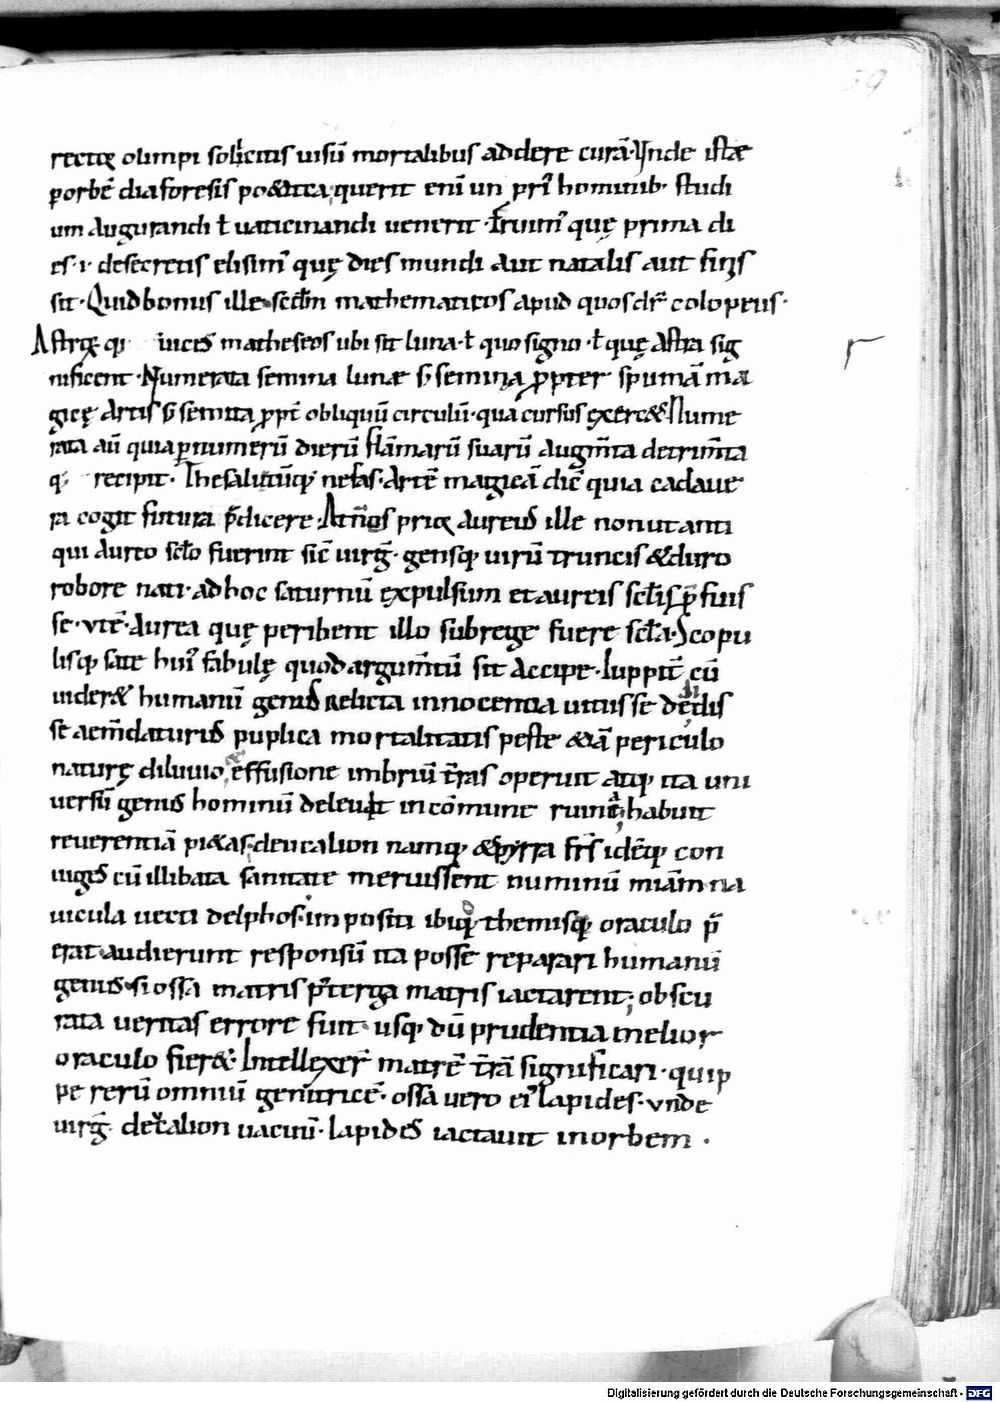 59
rectorẹ olimpi sollicitis uisū mortalibus addere curā· Inde istæ
p orbē diaforesis po&ica; querit enī un pri' hominib· studi
um augurandi ł uaticinandi uenerit· fruimꝰ quę prima di
es· i· desecretis elisimꝰ quę dies mundi aut natalis aut finis
sit· Quid bonus ille· scd̄m mathematicos apud quosdr̄ coloprus·
Astrorẹ iudices matheseos ubi sit luna· ł quo signo· ł quę Astra sig
nificent· Numerata semina lunæ s̄ semina propter spumā ma
gicę artis s̄ semita ppt̄ obliquū circulū· qua cursus exerc& Nume
rata aū quia p numerū dierū flāmarū suarū augm̄ta detrim̄ta
recipit· Thesalicūqꝫ nefas· Artē magicā dic̄ quia cadaue
ra cogit futura p̄dicere· prior aureus ille non utanti
qui aureo scło fuerint sic̄ uirḡ· gensqꝫ uirū truncis & duro
robore nati· ad hoc saturnū expulsum et aureis scłis p̄fuis
se· vtē· Aurea quę peribent illo sub rege fuere scła· Scopu
lisqꝫ sate huiꝰ fabulę quod argum̄tū sit accipe· Iuppit̄ cū
uider& humanū genus relicta innocentia uitiis se dedis
se aem̄daturus puplica mortalitatis peste &iā periculo
naturę diluuio, effusione imbriū t̄ras operuit atqꝫ ita uni
uersū genus hominū deleuit in cōmune ruina; habuit
reuerentiā pi&as; deucalion namqꝫ & pyrra frs̄ idēqꝫ con
iuges cū illibata sanitate meruissent numinū miām na
uicula uecti delphos· impositi ibiqꝫ themisqꝫ oraculo p̄
erat· audierunt responsū ita posse reparari humanū
genus· si ossa matris p̄terga matris iactarent; obscu
rata ueritas errore fuit· usqꝫ dū prudentia melior
oraculo fier&· Intellexer̄ matrē t̄rā significari· quip
pe rerū omniū genitricē· ossa uero eiꝰ lapides· vnde
uirḡ· deucalion uacuū· lapides iactauit in orbem ·
Digitalisierung gefördert durch die Deutsche Forschungsgemeinschaft - DFG